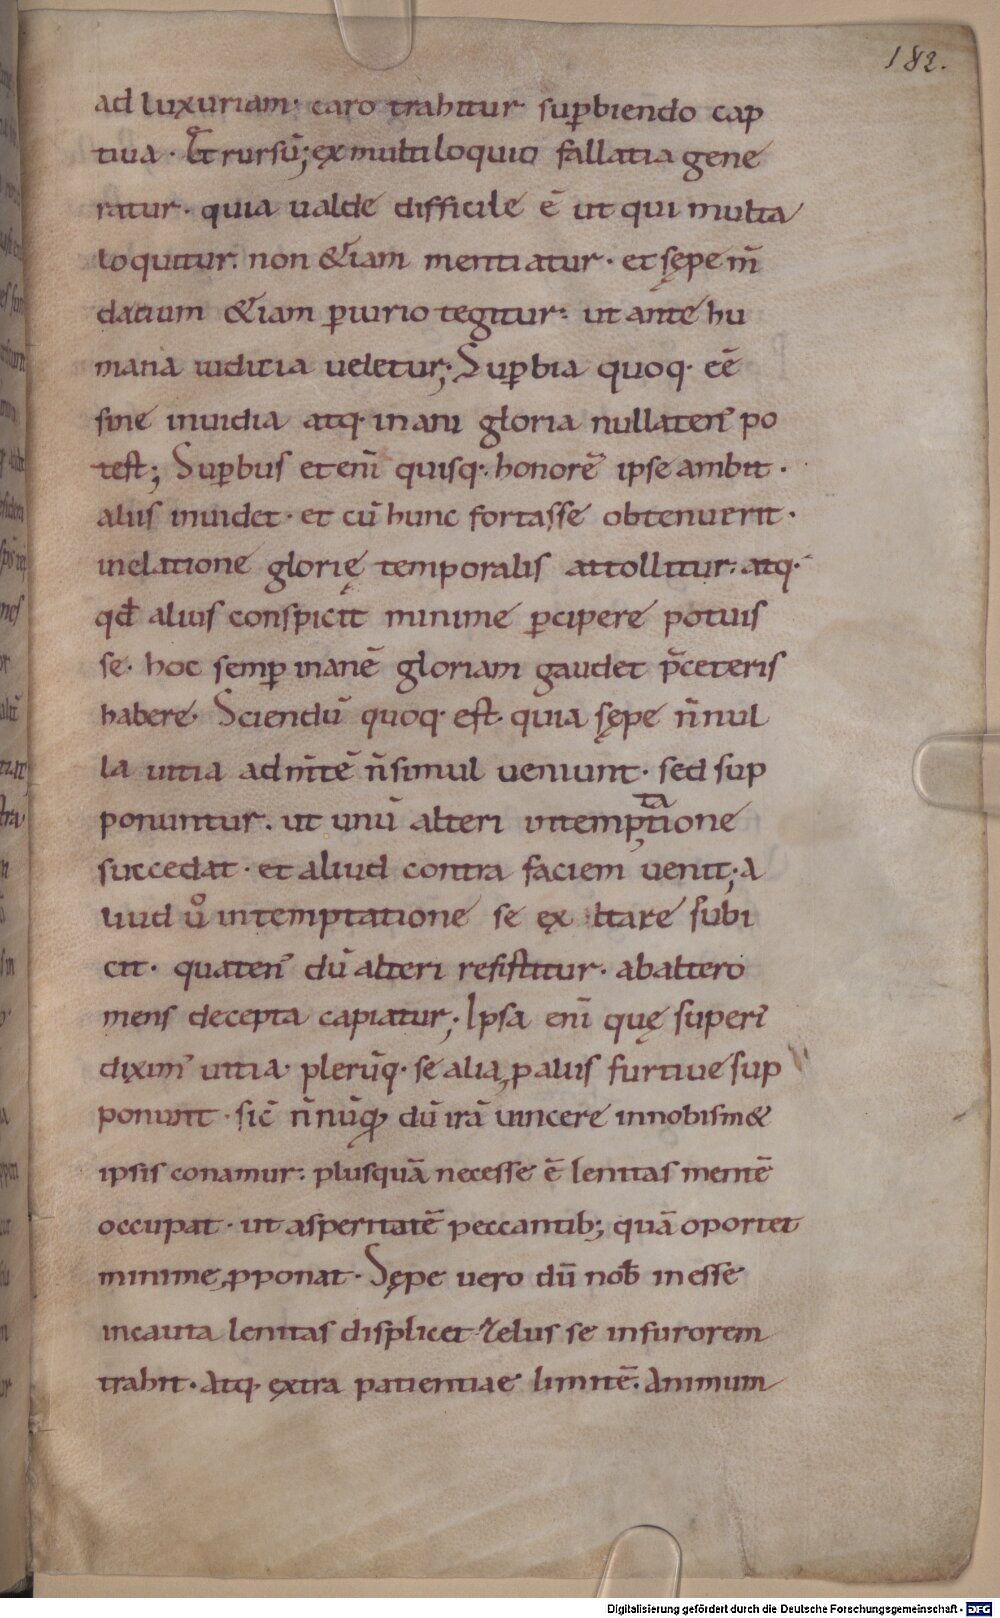 182.
ad luxuriam; caro trahitur sup̄biendo cap
tiua · Et rursū; ęx multiloquio fallatia gene
ratur · quia ualde difficile ē ut qui multa
loquitur. non &iam mentiatur · et sępe m̄
datium &iam p̄iurio tegitur: ut ante hu
mana iuditia ueletur; Sup̄bia quoq· eē
sine inuidia atq· inani gloria nullaten᾽ po
test; Sup̄bus eteni̅ quisq·. honorē ipse ambit ·
aliis inuidet · et cū hunc fortasse obtenuerit ·
inelatione glorię temporalis attollitur: atq·
qđ aliis conspicit minime p̄cipere potuis
se · hoc semp̄ inanē gloriam gaudet p̄ceteris
habere · Sciendū quoq· est · quia sępe n̄nul
la uitia ad m̄tē n̄simul ueniunt · sed sup
ponuntur. ut unū alteri intemptatione
succedat · et aliud contra faciem uenit; a
liud ů intemptatione se ęx ltare subi
cit · quaten᾽ dū alteri resistitur · abaltero
mens decepta capiatur; Ipsa eni̅ quę superi᾽
dixim᾽ uitia · plerūq· se alia, p aliis furtiue sup
ponunt · sic̄ n̄nūq dū irā uincere innobism&
ipsis conamur: plusquā necesse ē lenitas mentē
occupat · ut asperitatē peccantib; quā oportet
minime, p̱ponat · Sępe uero dū nob̄ inesse
incauta lenitas displicet · zelus se infurorem
trahit · atq· ęxtra patientiae limitē. animum
Digitalisierung gefördert durch die Deutsche Forschungsgemeinschaft - DFG